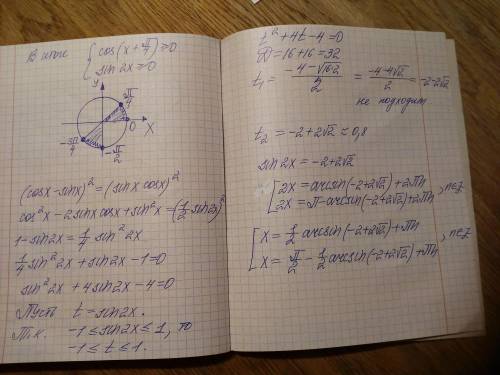 В итоге { cos(x + π/4) ≥ 0
sin 2x ≥ 0
y
π/4
0
x
-3π/4
-π/2
(cosx - sinx)² = (sinx cosx)²
cos²x - 2sinx cosx + sin²x = (1/2 sin2x)²
1 - sin2x = 1/4 sin²2x
1/4 sin²2x + sin2x - 1 = 0
sin²2x + 4sin2x - 4 = 0
Пусть t = sin2x.
Т.к. -1 ≤ sin2x ≤ 1, то
-1 ≤ t ≤ 1.
t² + 4t - 4 = 0
D = 16 + 16 = 32
t₁ = (-4 - √16·2)/2 = (-4 - 4√2)/2 = -2 - 2√2
не подходит
t₂ = -2 + 2√2 ≈ 0,8
sin2x = -2 + 2√2
[ 2x = arcsin(-2 + 2√2) + 2πn
2x = π - arcsin(-2 + 2√2) + 2πn , n∈Z
[ x = 1/2 arcsin(-2 + 2√2) + πn
x = π/2 - 1/2 arcsin(-2 + 2√2) + πn , n∈Z